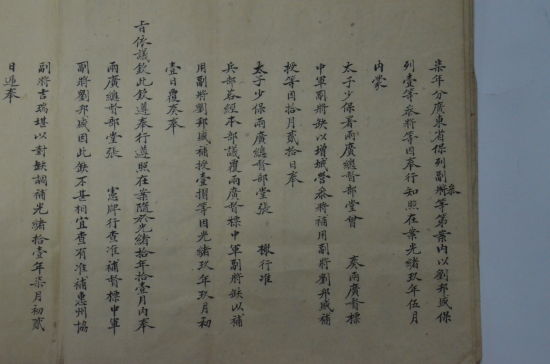 柒年分廣東省保列副參將等第案內以劉邦盛保
列壹等參將等因奉行知照在案光緒玖年伍月
內蒙
太子少保署兩廣總督部堂曾 奏兩廣督標
中軍副將缺以增城營參將補用副將劉邦盛補
授等因拾月貳拾日奉
太子少保兩廣總督部堂張 檄行准
兵部咨經本部議覆兩廣督標中軍副將缺以補
用副將劉邦盛補授壹摺等因光緒玖年玖月初
壹日覆奏奉
旨依議欽此欽遵奉行遵照在案隨於光緒拾年拾壹月內奉
兩廣總督部堂張 憲牌行查准補督標中軍
副將劉邦盛因此缺不甚相宜查有准補惠州協
副將吉瑞堪以對缺調補光緒拾壹年柒月初貳
日奉